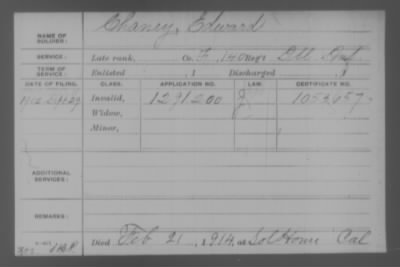 Chaney, Edward
NAME OF SOLDIER:
SERVICE: Late rank, Co. F, 140 Reg't Ill Inf.
TERM OF SERVICE: Enlisted , 1 Discharged , 1
DATE OF FILING. CLASS. APPLICATION NO. LAW. CERTIFICATE NO.
Invalid, 1291200 1053057
Widow,
Minor,
ADDITIONAL SERVICES:
REMARKS:
Died Feb 21, 1914, at Sol Home Cal